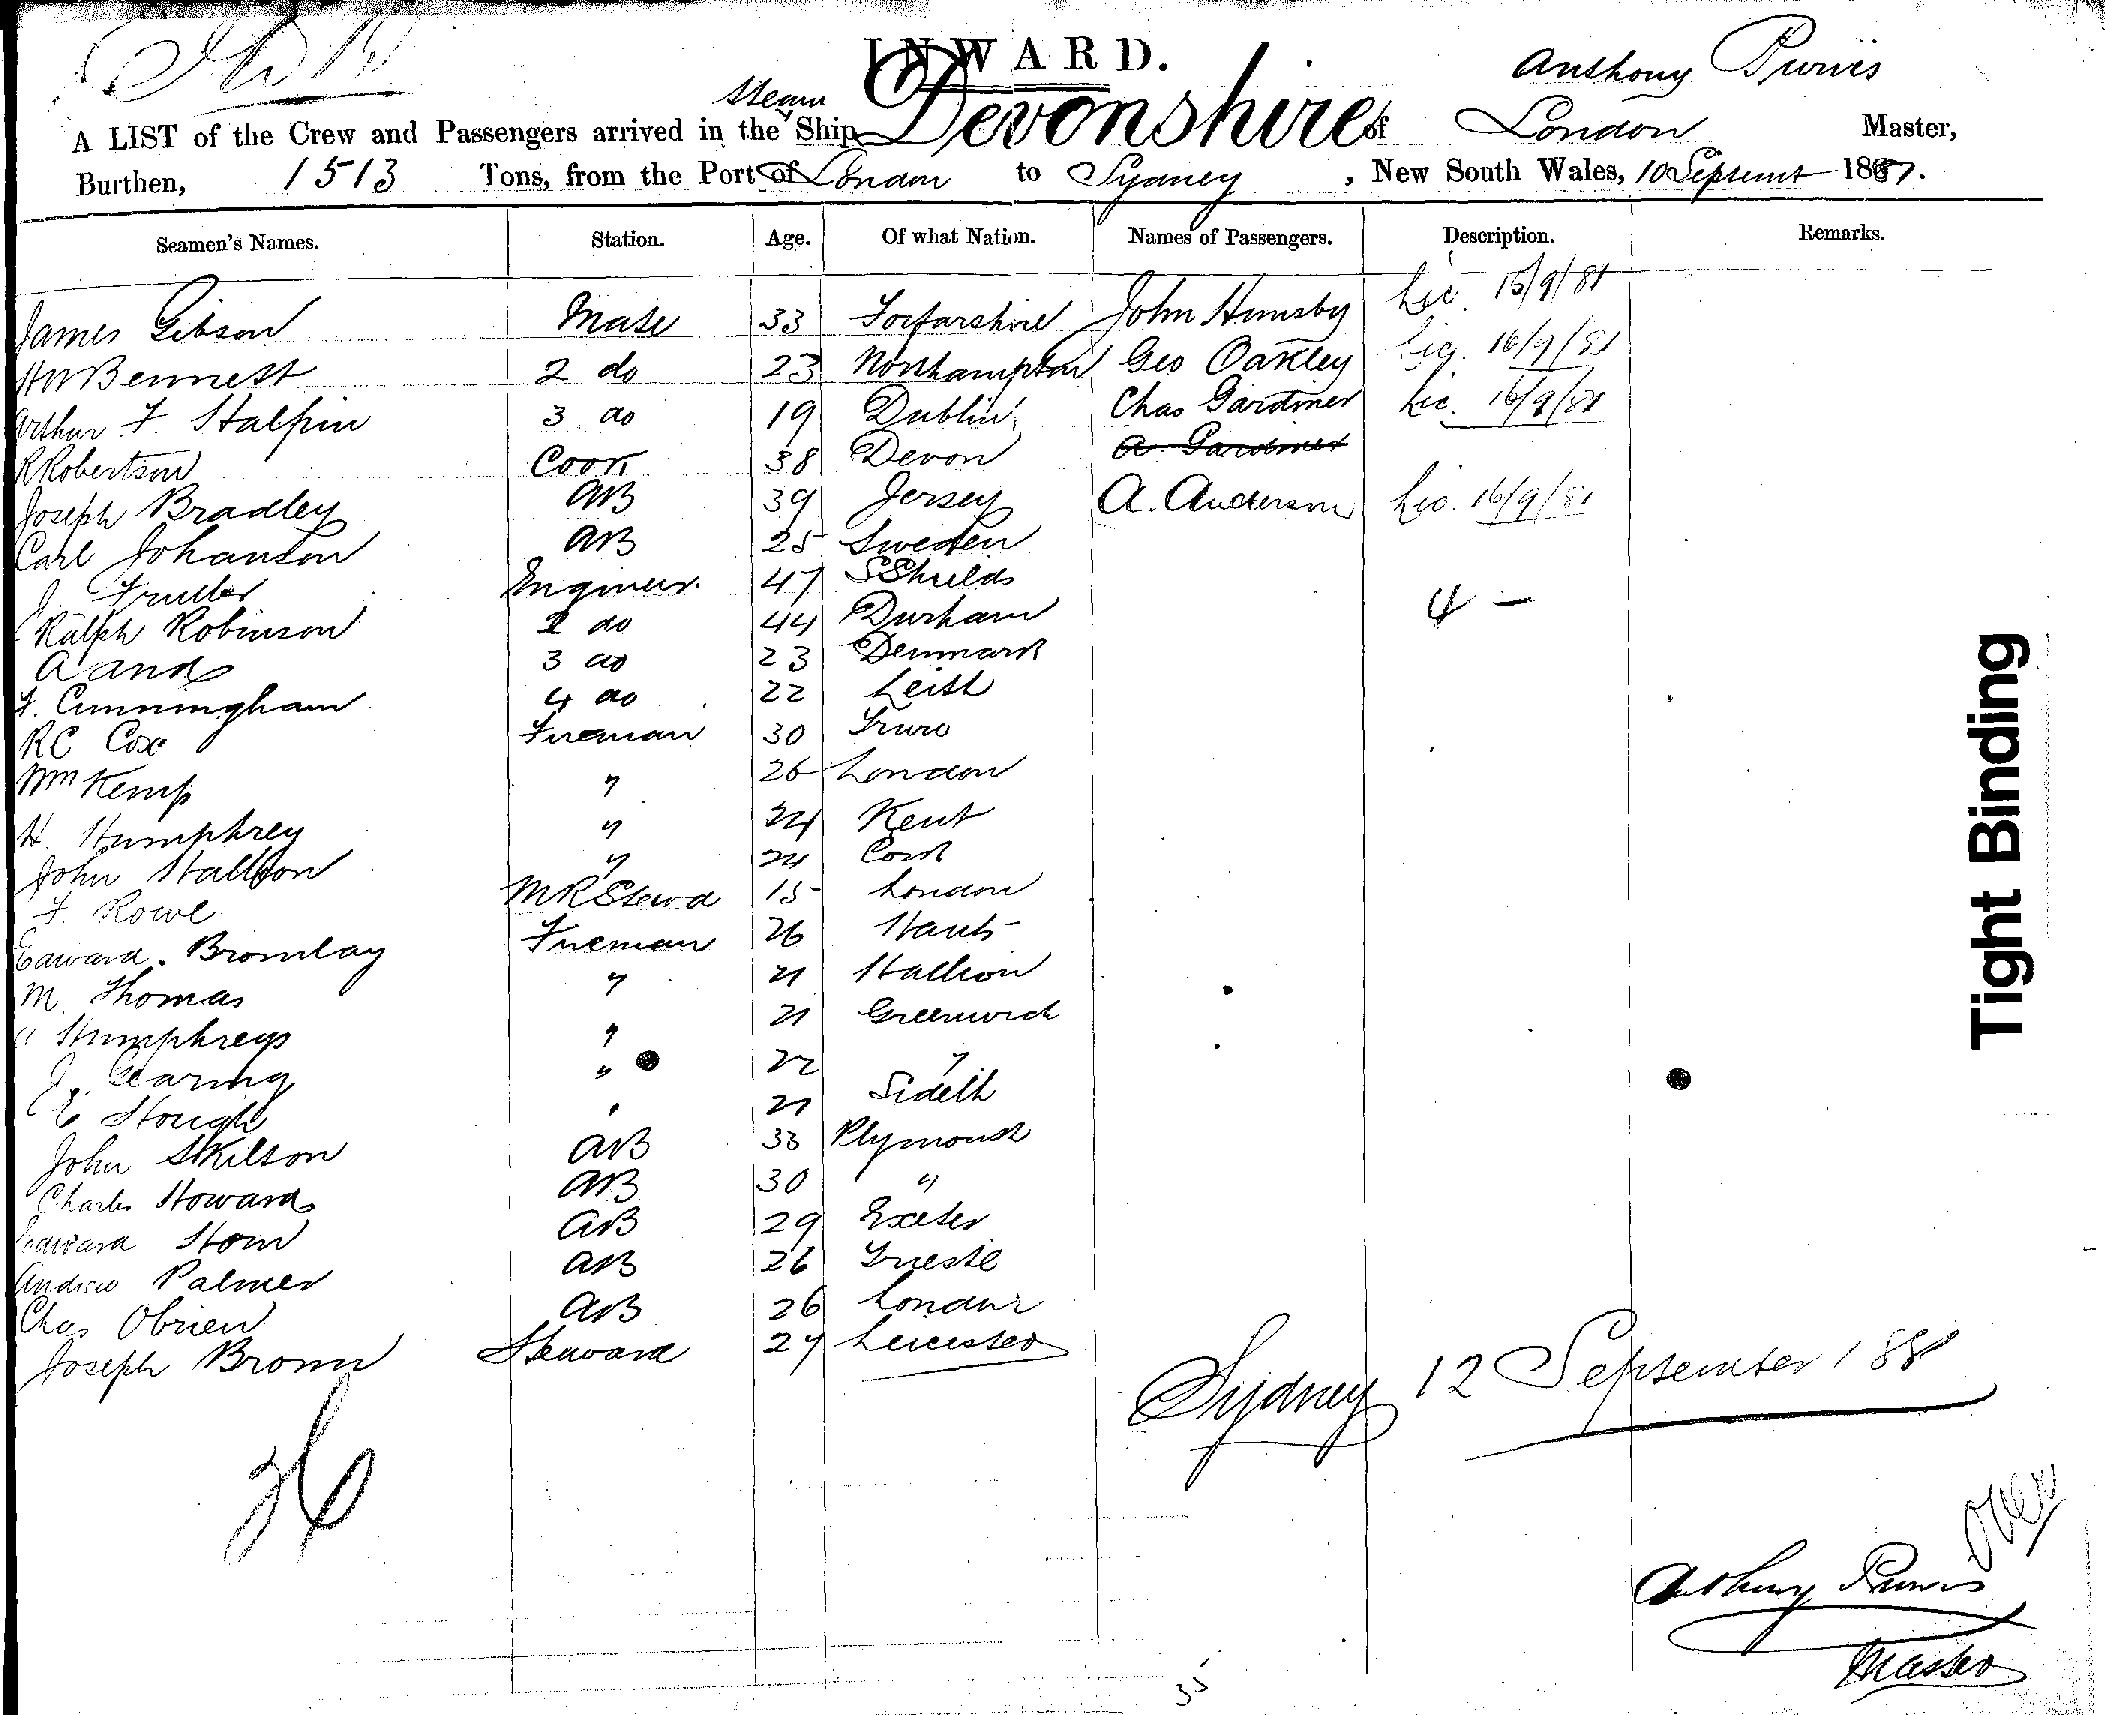 INWARD.
Anthony Purvis
A LIST of the Crew and Passengers arrived in the Steam Ship Devonshire of London Master,
Burthen, 1513 Tons, from the Port of London to Sydney, New South Wales, 10 Septemr 1881.
Seamen's Names. Station. Age. Of what Nation. Names of Passengers. Description. Remarks.
James Gibson Mate 33 Forfarshire John Hunsby Lic. 15/9/81
HW Bennett 2 do 23 Northampton Geo Oakley Lic. 16/9/81
Arthur F. Halpin 3 do 19 Dublin Chas Gardiner Lic. 16/9/81
R Robertson Cook 38 Devon A. Gardiner
Joseph Bradley AB 39 Jersey A. Anderson Lic. 16/9/81
Carl Johanson AB 25 Sweden
J. Engineer 47 S Shields
4 —
Ralph Robinson 2 do 44 Durham
3 do 23 Denmark
F. Cunningham 4 do 22 Leith
RC Cox Fireman 30 Truro
Wm Kemp " 26 London
H. Humphrey " 24 Kent
John Hallson " 24 Cork
F. Rowe MRStewd 15 London
Edward Bromlay Fireman 26 Hants
M. Thomas " 21
Humphreys " 21 Greenwich
J. Gearing " 22 "
E Hough " 21
John Skilson AB 33 Plymouth
Charles Howard AB 30 "
Edward Horn AB 29 Exeter
Andrew Palmer AB 26 Trieste
Chas Obrien AB 26 London
Joseph Brown Steward 27 Leicester
Sydney 12 September 1881
26
over
Anthony Purvis
Master
35
Tight Binding